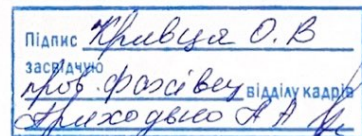 Підпис Кривця О. В
засвідчую
пров. фахівец відділу кадрів
Приходько А А